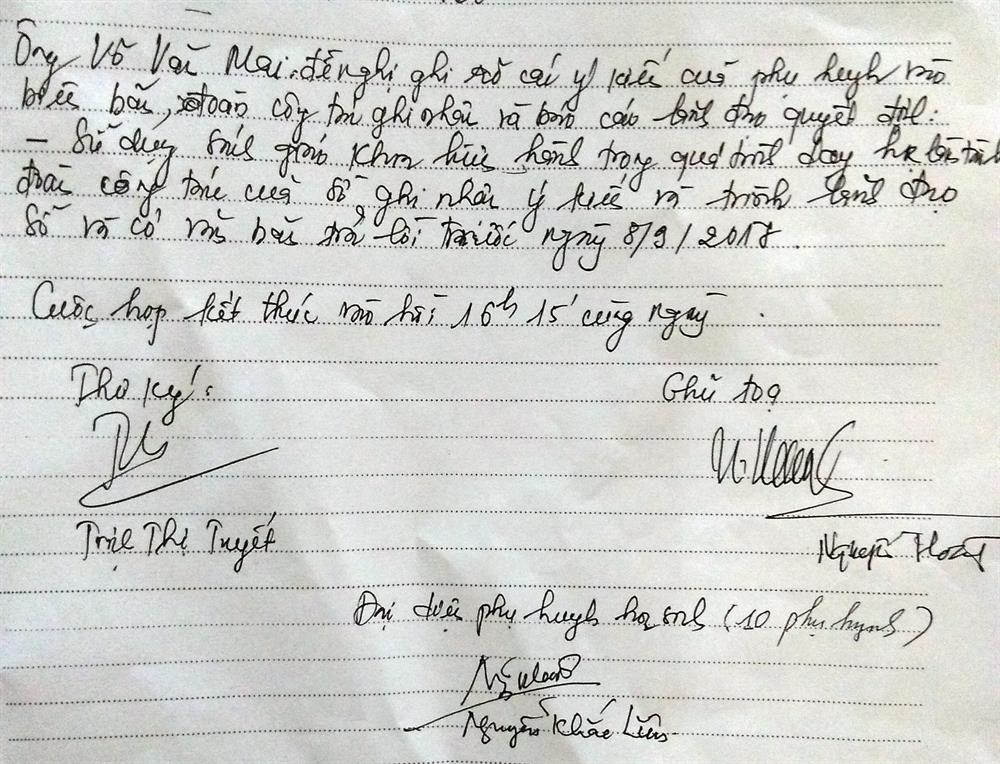 Ông Võ Văn Mai: đề nghị ghi rõ các ý kiến của phụ huynh vào
biên bản, đoàn công tác ghi nhận và báo cáo lãnh đạo quyết định:
- Sử dụng sách giáo khoa hiện hành trong quá trình dạy học
đoàn công tác của Sở ghi nhận ý kiến và trình lãnh đạo
Sở và có văn bản trả lời trước ngày 8/9/2017.
Cuộc họp kết thúc vào hồi 16h 15' cùng ngày.
Thư ký:
Chủ toạ
Trịnh Thị Tuyết
Nguyễn Hoàng
Đại diện phụ huynh học sinh (10 phụ huynh)
Nguyễn Khắc Liên